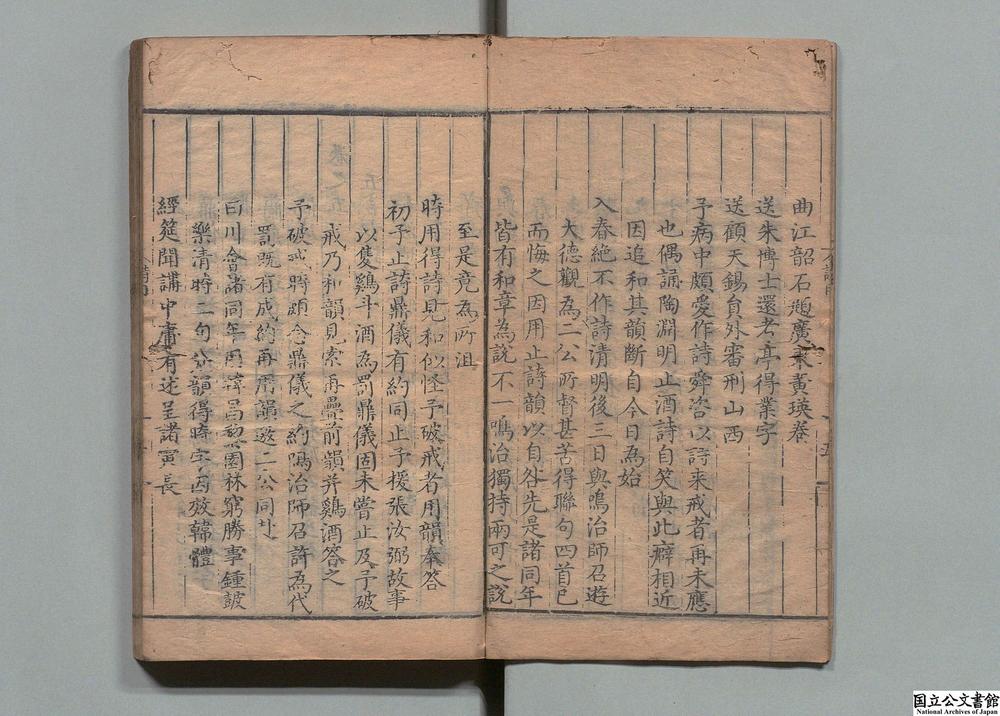 曲江韶石題廣東黃瑛卷
送朱博士還考亭得業字
送顧天錫員外審刑山西
予病中頗愛作詩舜咨以詩来戒者再未應
也偶誦陶淵明止酒詩自笑與此癖相近
因追和其韻斷自今日為始
入春絶不作詩清明後三日與鳴治師召遊
大德觀為二公所督甚苦得聯句四首已
而悔之因用止詩韻以自咎先是諸同年
皆有和章為說不一鳴治獨持兩可之説
至是竟為所沮
時用得詩見和似怪予破戒者用韻奉答
初予止詩鼎儀有約同止予援張汝弼故事
以隻鷄斗酒為罰鼎儀固未嘗止及予破
戒乃和韻見索再疊前韻并鷄酒答之
予破戒時頗念鼎儀之約鳴治師召許為代
罰既有成約再用韻邀二公同
曰川會諸同年用韓昌黎園林窮勝事鍾皷
樂清時二句分韻得時字因效韓體
經筵聞講中庸有述呈諸寅長
国立公文書館
National Archives of Japan